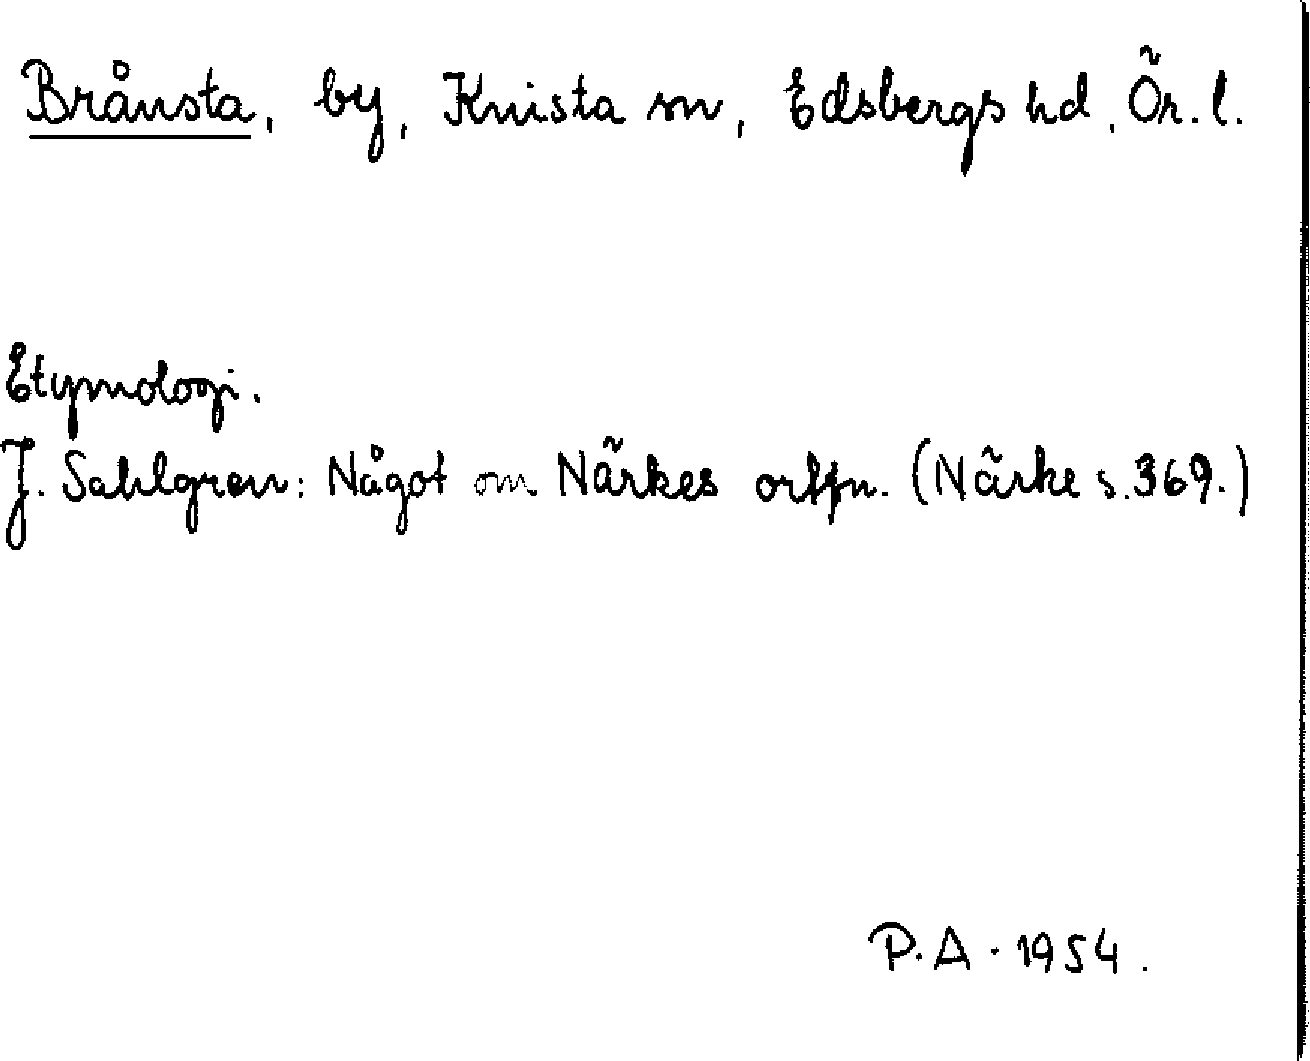 Brånsta, by, Knista sn, Edsbergs hd, Ör. l.
Etymologi.
J. Sahlgren: Något om Närkes ortn. (Närke s. 369.)
P. A. 1954.